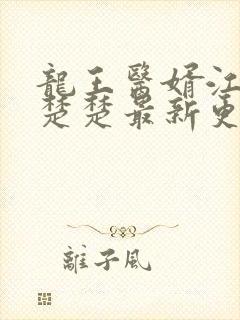 龍王醫婿江
楚楚最新更
離子風